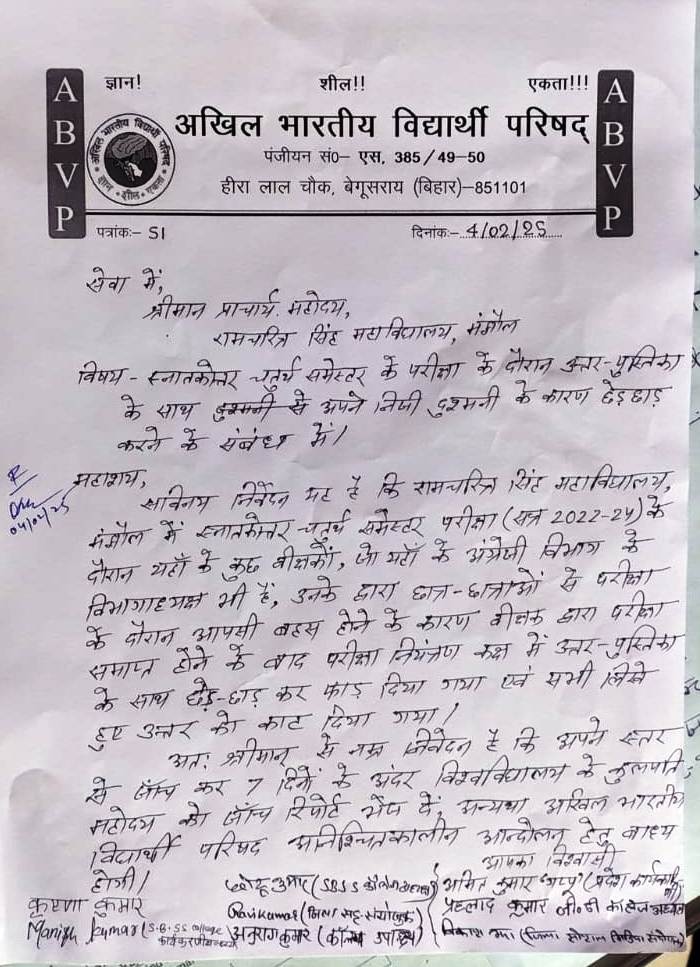 ज्ञान! शील!! एकता!!!
ABVP
ABVP
अखिल भारतीय विद्यार्थी परिषद्
अखिल भारतीय विद्यार्थी परिषद
ज्ञान शील एकता
पंजीयन सं०– एस, 385/49-50
हीरा लाल चौक, बेगूसराय (बिहार)–851101
पत्रांक:– 51 दिनांक:– 4/02/25
सेवा में,
श्रीमान प्राचार्य महोदय,
रामचरित्र सिंह महाविद्यालय, मंझौल
विषय – स्नातकोत्तर चतुर्थ समेस्टर के परीक्षा के दौरान उत्तर-पुस्तिका
के साथ दुश्मनी से अपने निजी दुश्मनी के कारण छेड़छाड़
करने के संबंध में।
महाशय,
04/02/25
सविनय निवेदन यह है कि रामचरित्र सिंह महाविद्यालय,
मंझौल में स्नातकोत्तर चतुर्थ समेस्टर परीक्षा (सत्र 2022-24) के
दौरान यहाँ के कुछ वीक्षकों, जो यहाँ के अंग्रेजी विभाग के
विभागाध्यक्ष भी हैं, उनके द्वारा छात्र-छात्राओं से परीक्षा
के दौरान आपसी बहस होने के कारण वीक्षक द्वारा परीक्षा
समाप्त होने के बाद परीक्षा नियंत्रण कक्ष में उत्तर-पुस्तिका
के साथ छेड़-छाड़ कर फाड़ दिया गया एवं सभी लिखे
हुए उत्तर को काट दिया गया।
अतः श्रीमान् से नम्र निवेदन है कि अपने स्तर
से जाँच कर 7 दिनों के अंदर विश्वविद्यालय के कुलपति
महोदय को जाँच रिपोर्ट भेज दें, अन्यथा अखिल भारतीय
विद्यार्थी परिषद अनिश्चितकालीन आन्दोलन हेतु बाध्य
होगी।
आपका विश्वासी
कृष्णा कुमार
Manish kumar (S.B.SS college
कुमार (SBSS
Ravi kumar (जिला सह-संयोजक)
अनुराग कुमार (कॉलेज उपाध्यक्ष)
अमित कुमार 'गप्पु' (प्रदेश कार्यकारिणी
प्रहलाद कुमार जी.डी कॉलेज अध्यक्ष
विकाश (जिला सोशल मिडिया संयोजक)